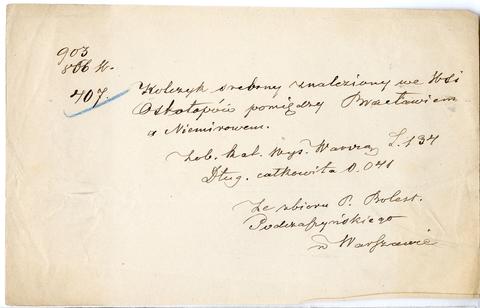 903
866 H.
407. Kolczyk srebrny znaleziony we Wsi
Ostołopów pomiędzy Bracławiem
a Niemirowem.
Zob. Kat. Wys. Warsza. L. 134
Dług. całkowita 0.041
Ze zbioru P. Bolest.
Podczaszyńskiego
w Warszawie